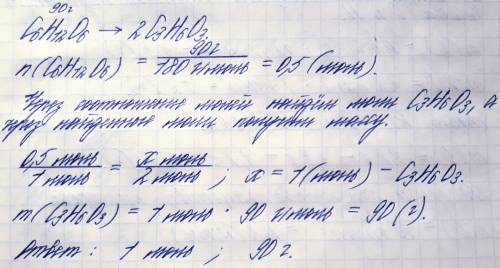 90г
C6H12O6 → 2C3H6O3.
n(C6H12O6) = 90г / 180 г/моль = 0,5 (моль).
Через соотношение молей найдём моли C3H6O3, а
через найденные моли получим массу.
0,5 моль / 1 моль = x моль / 2 моль ; x = 1 (моль) – C3H6O3.
m(C3H6O3) = 1 моль · 90 г/моль = 90 (г).
Ответ: 1 моль ; 90 г.